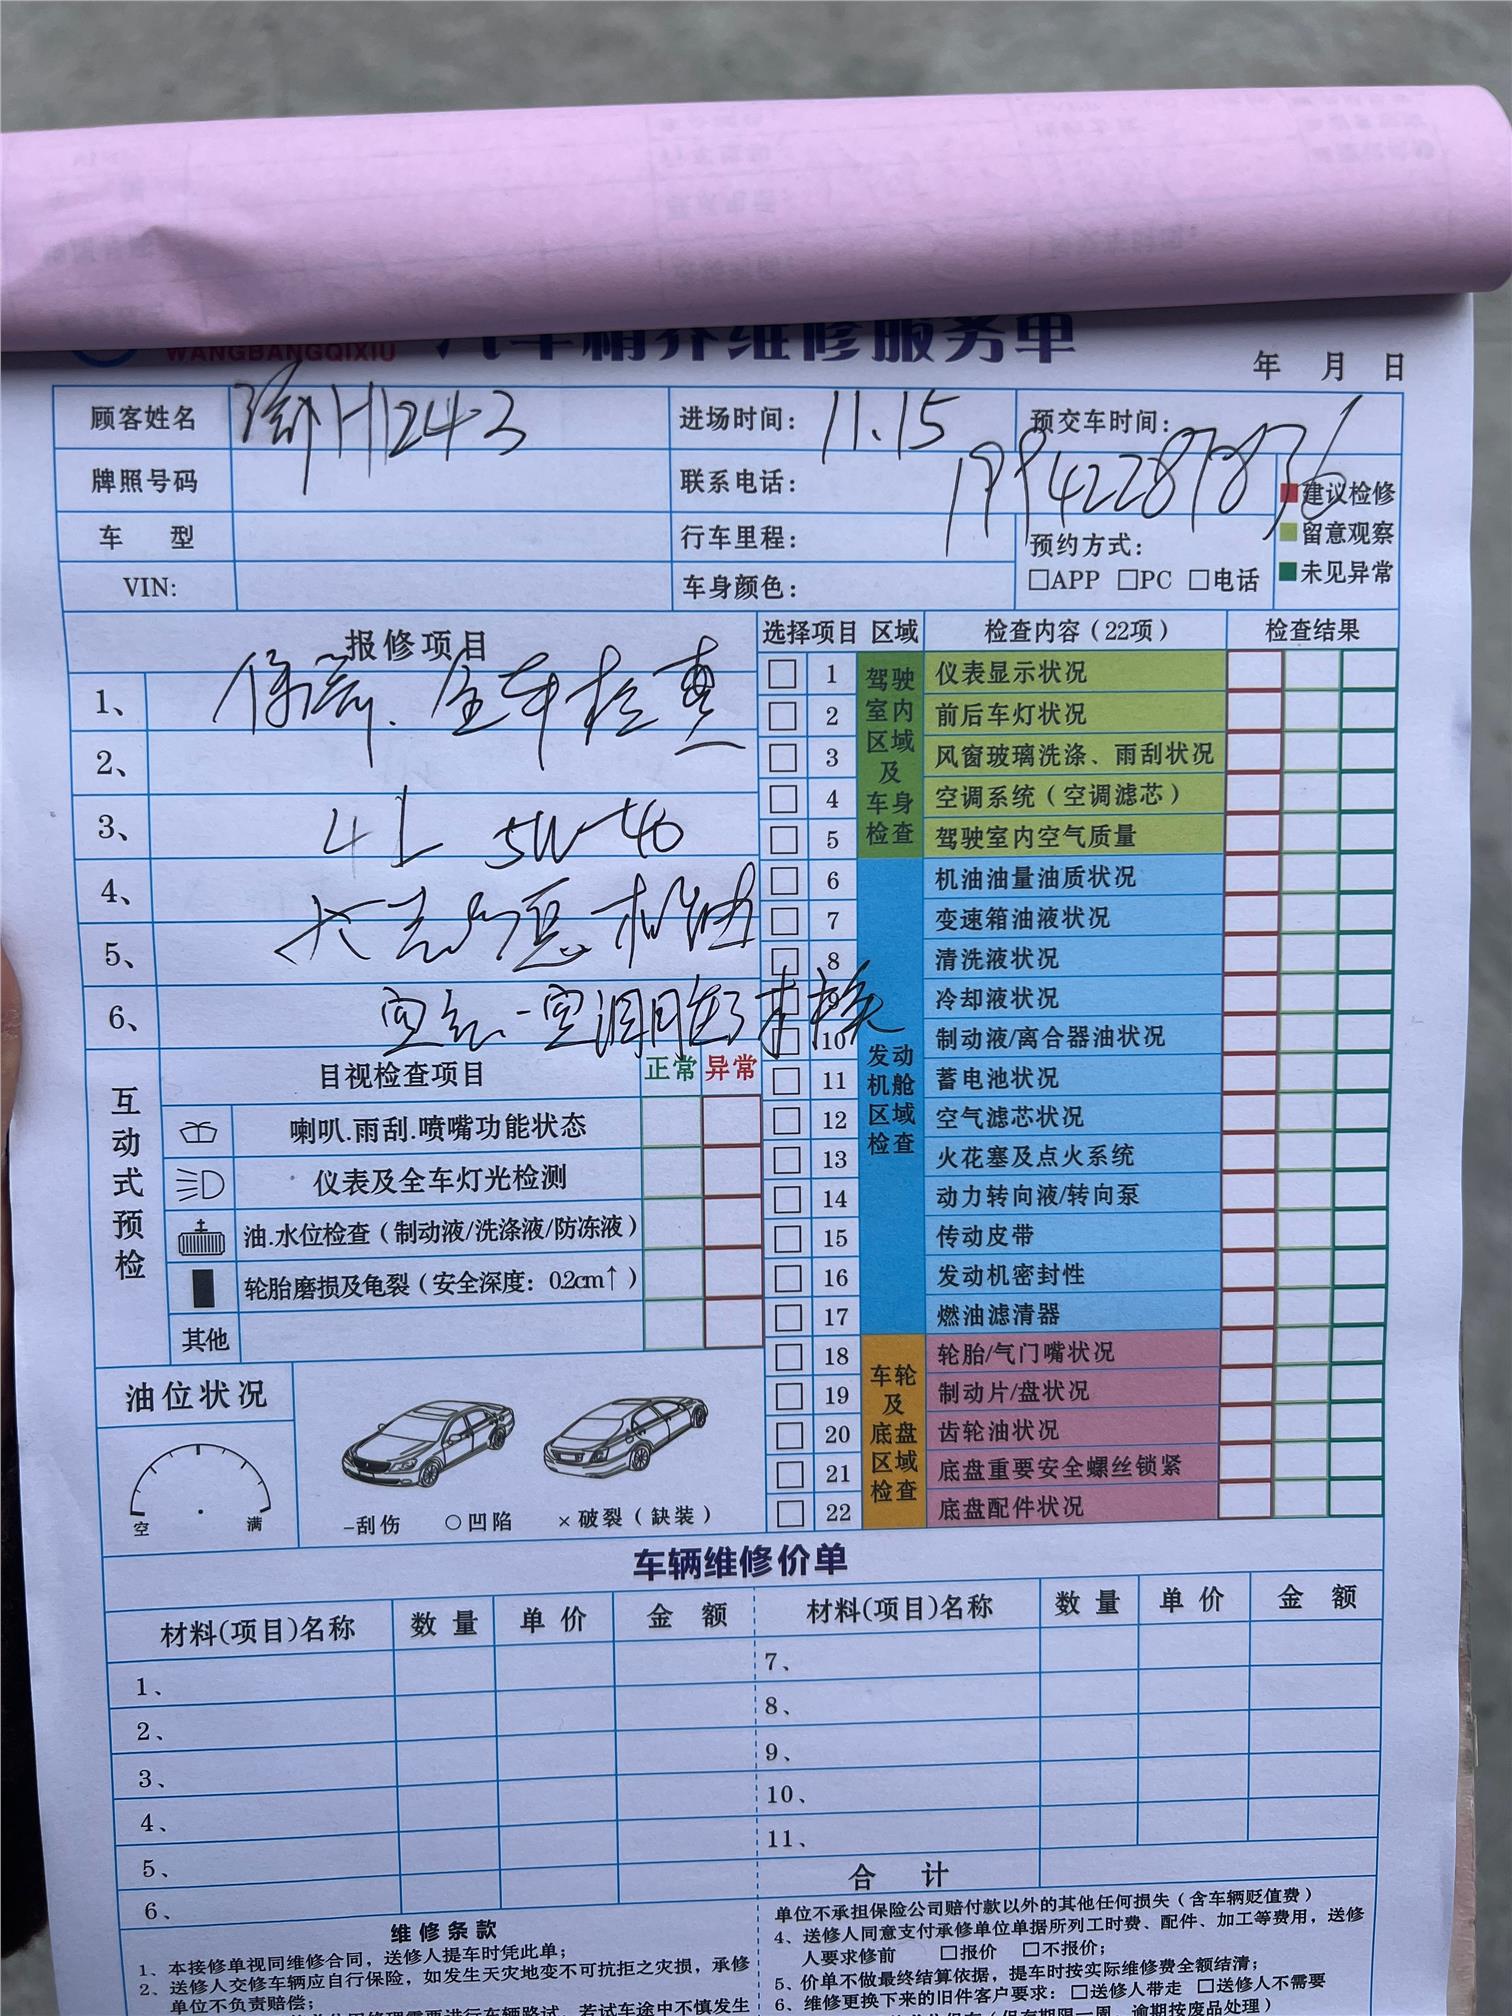 WANGBANGQIXIU 汽车精养维修服务单
年 月 日
顾客姓名 H1243 进场时间: 11.15 预交车时间:
牌照号码 联系电话: 19942287836
建议检修
车 型 行车里程: 预约方式: 留意观察
VIN: 车身颜色: □APP □PC □电话 未见异常
报修项目 选择项目 区域 检查内容(22项) 检查结果
1、 保养、全车检查
2、
3、 4L 5W-40
4、
5、 机油
6、 空气、空调
驾驶室内区域及车身检查
1 仪表显示状况
2 前后车灯状况
3 风窗玻璃洗涤、雨刮状况
4 空调系统(空调滤芯)
5 驾驶室内空气质量
发动机舱区域检查
6 机油油量油质状况
7 变速箱油液状况
8 清洗液状况
9 冷却液状况
10 制动液/离合器油状况
11 蓄电池状况
12 空气滤芯状况
13 火花塞及点火系统
14 动力转向液/转向泵
15 传动皮带
16 发动机密封性
17 燃油滤清器
车轮及底盘区域检查
18 轮胎/气门嘴状况
19 制动片/盘状况
20 齿轮油状况
21 底盘重要安全螺丝锁紧
22 底盘配件状况
互动式预检
目视检查项目 正常 异常
喇叭.雨刮.喷嘴功能状态
仪表及全车灯光检测
油.水位检查(制动液/洗涤液/防冻液)
轮胎磨损及龟裂(安全深度: 0.2cm↑)
其他
油位状况
空 满
-刮伤 ○凹陷 ×破裂(缺装)
车辆维修价单
材料(项目)名称 数量 单价 金 额 材料(项目)名称 数量 单价 金 额
1、 7、
2、 8、
3、 9、
4、 10、
5、 11、
6、 合 计
维修条款
1、本接修单视同维修合同，送修人提车时凭此单；
2、送修人交修车辆应自行保险，如发生天灾地变不可抗拒之灾损，承修
单位不负责赔偿；
单位不承担保险公司赔付款以外的其他任何损失(含车辆贬值费)
4、送修人同意支付承修单位单据所列工时费、配件、加工等费用，送修
人要求修前 □报价 □不报价；
5、价单不做最终结算依据，提车时按实际维修费全额结清；
6、维修更换下来的旧件客户要求: □送修人带走 □送修人不需要